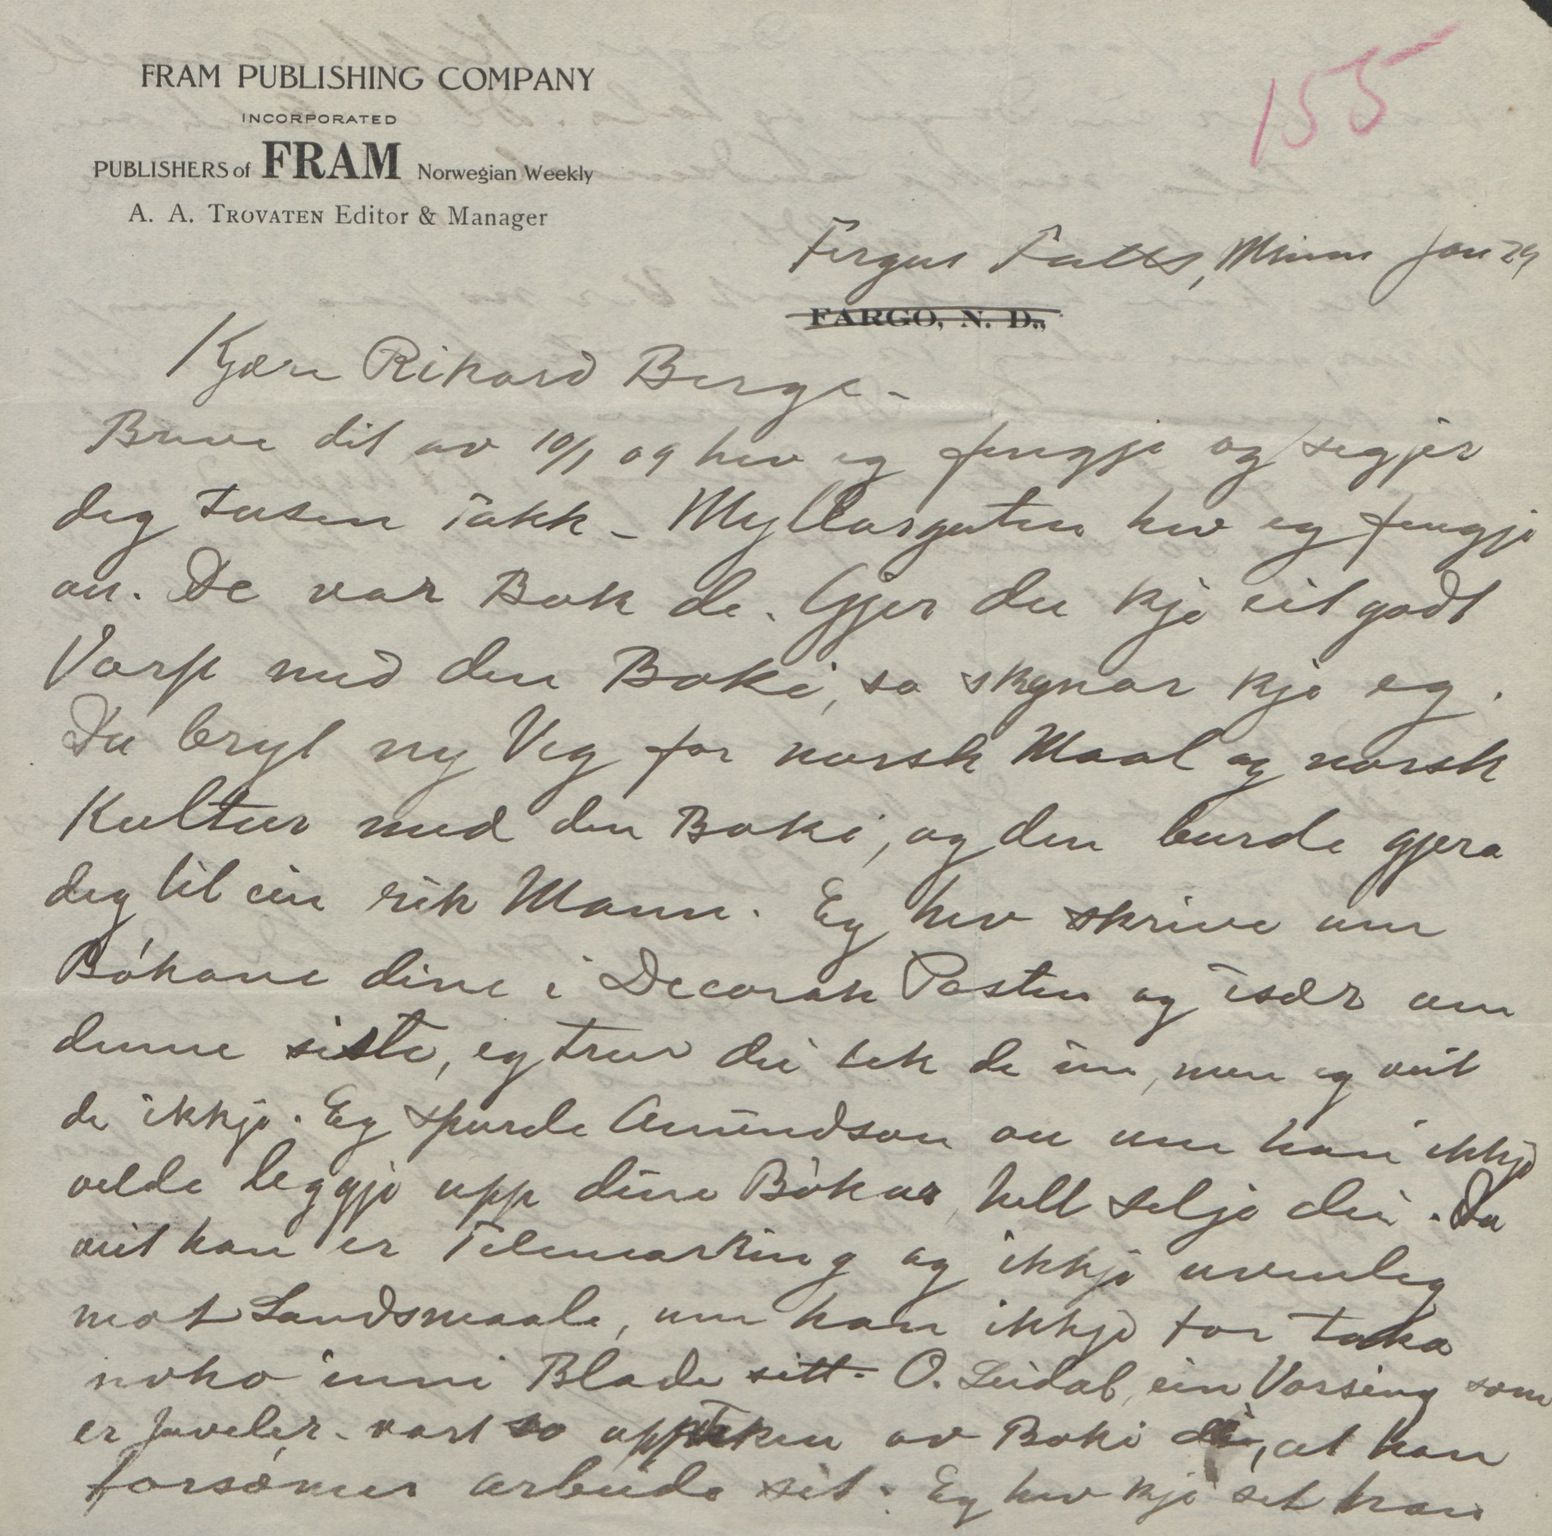 FRAM PUBLISHING COMPANY
INCORPORATED
PUBLISHERS of FRAM Norwegian Weekly
A. A. TROVATEN Editor & Manager
155
Fergus Falls, Minn Jan 29
FARGO, N. D.,
Kjære Rikard Berge -
Breve dit av 10/1 09 hev eg fengje og segjer
deg tusen Takk - Myllarguten hev eg fengje
au. De var Bok de. Gjer du kje eit godt
Varp med den Boki, so skynar kje eg.
Du bryt ny Veg for norsk Maal og norsk
Kultur med den Boki, og den burde gjera
deg til ein rik Mann. Eg hev skrive um
Bókane dine i Decorah Posten og især um
denne siste, eg trur dei tek de inn, men eg veit
de ikkje. Eg spurde Amundson au um han ikkje
vilde leggje upp dine Bókar, hell selje dei. Du
veit han er Telemarking og ikkje uvenleg
mot Landsmaale, um han ikkje tor taka
noko inni Blade sitt. O. Leidal, ein Vorsing som
er Juvelér - vart so uppteken av Boki di, at han
forsømer arbeide sit. Eg hev kje set han